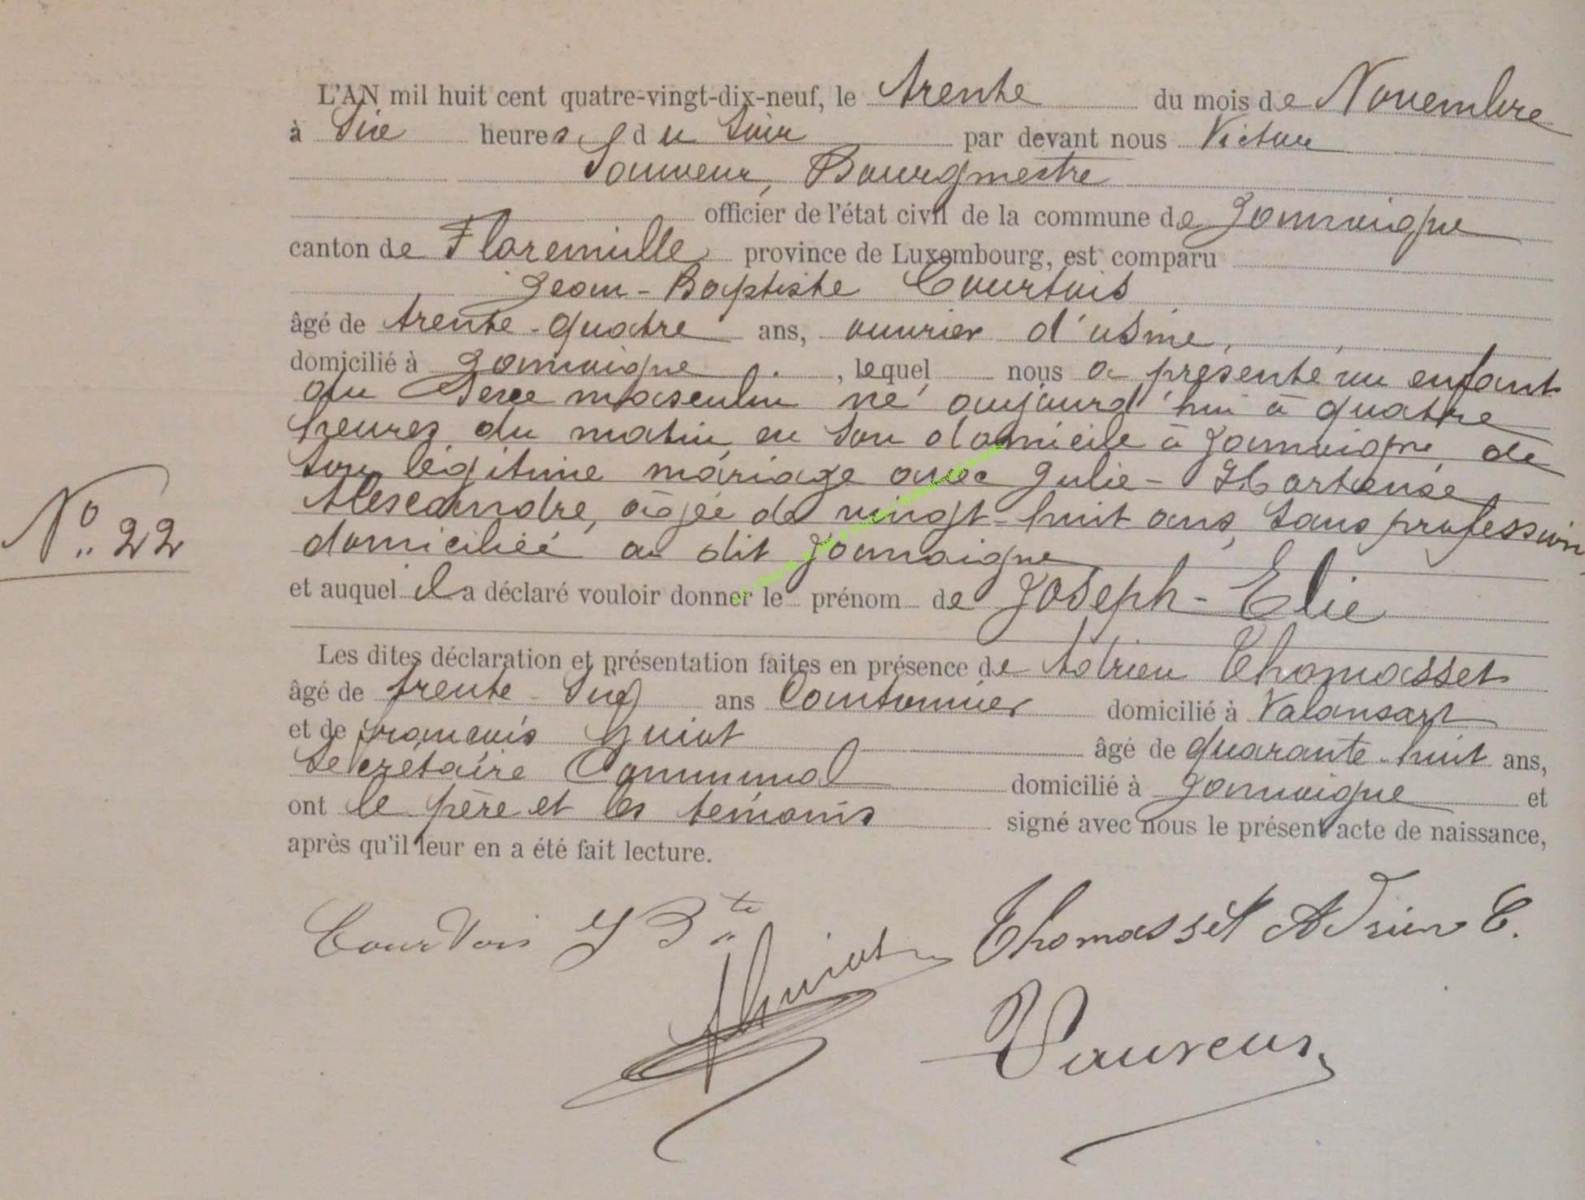 L'AN mil huit cent quatre-vingt-dix-neuf, le trente du mois de Novembre
à Six heures du Soir par devant nous Victor
Sauveur, Bourgmestre
officier de l'état civil de la commune de Jamoigne
canton de Florenville province de Luxembourg, est comparu
Jean-Baptiste Courtois
âgé de trente-quatre ans, ouvrier d'usine,
domicilié à Jamoigne, lequel nous a présenté un enfant
du Sexe masculin né aujourd'hui à quatre
heures du matin en Son domicile à Jamoigne de
Son légitime mariage avec Julie-Hortense
Alexandre, âgée de vingt-huit ans, Sans profession,
domiciliée au dit Jamoigne
et auquel il a déclaré vouloir donner le prénom de Joseph-Elie
Les dites déclaration et présentation faites en présence de Adrien Thomasset
âgé de trente ans Cantonnier domicilié à Valansart
et de François Guiot âgé de quarante-huit ans,
Secrétaire Communal domicilié à Jamoigne et
ont le père et les témoins signé avec nous le présent acte de naissance,
après qu'il leur en a été fait lecture.
N° 22
Courtois J Bte
Guiot
Thomasset Adrien C.
V Sauveur